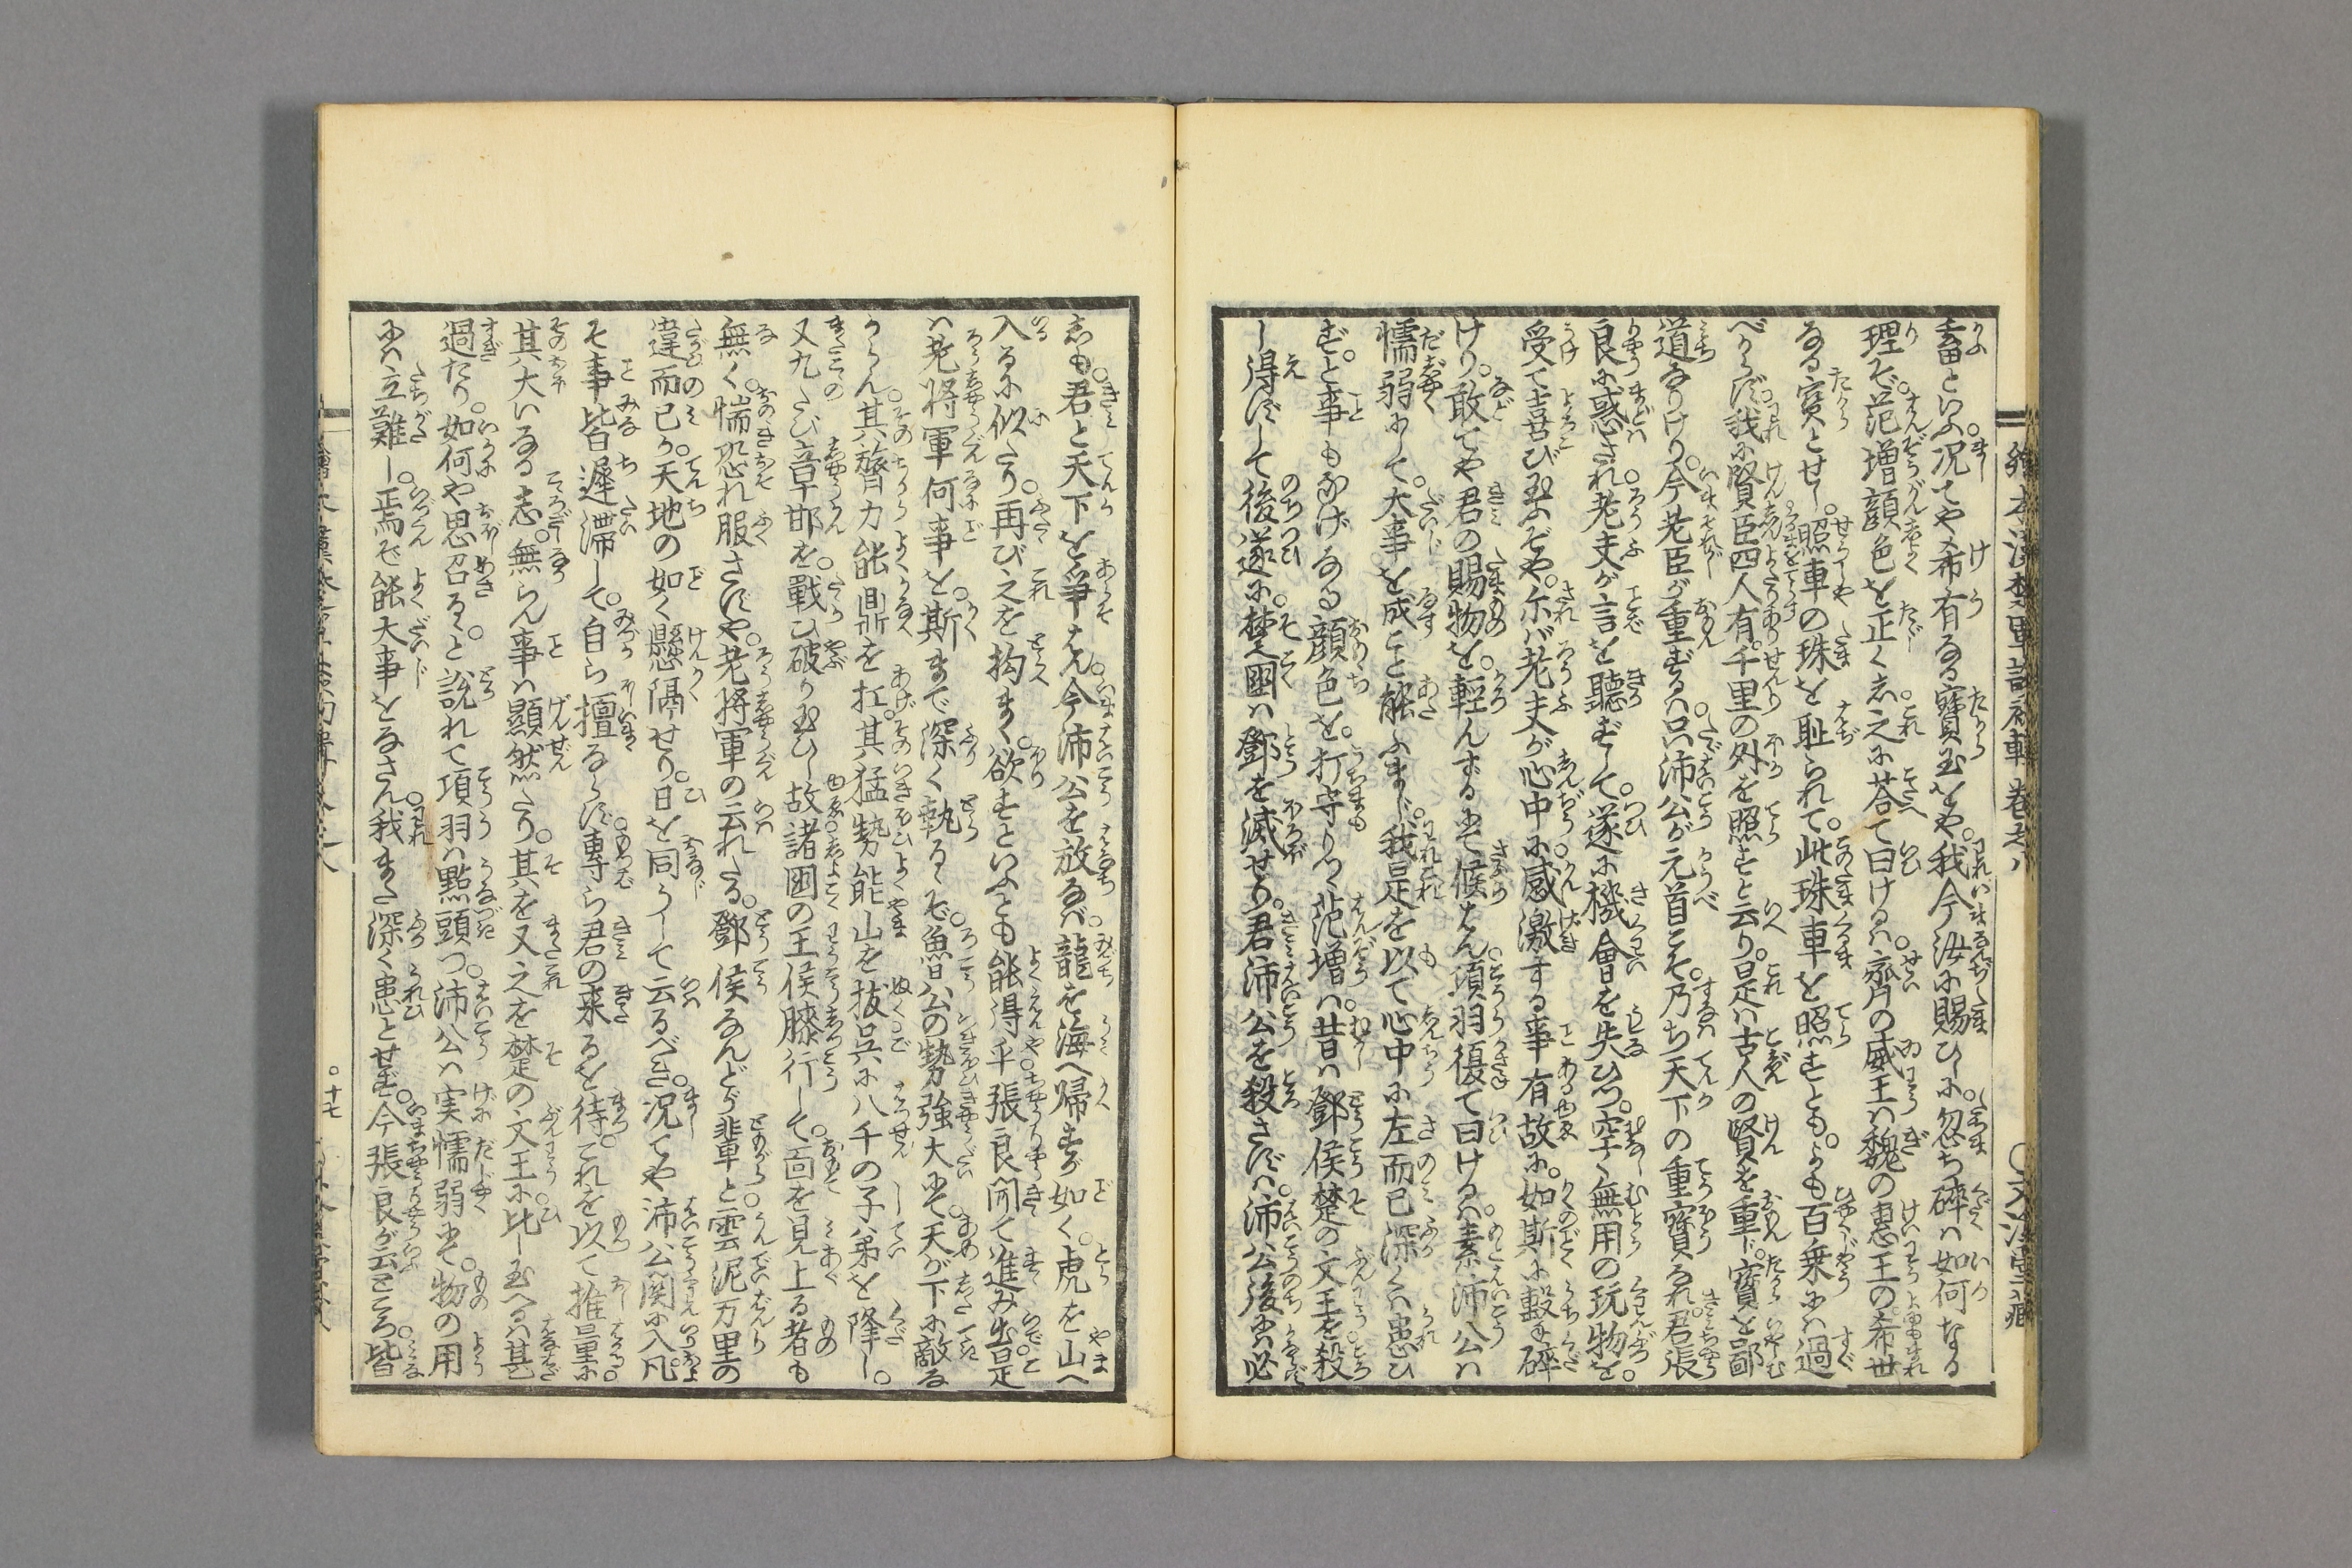 畜といふ。况てや希有なる寳玉をや。我今汝に賜ひしに。忽ち碎くは如何なる
理ぞ。范増顔色を正くし。之に荅て曰けるは。齊の威王は魏の惠王の希世
なる寳とせし。照車の珠を恥られて。此珠車を照すとも。よも百乗には過
べからず。我に賢臣四人有。千里の外を照すと云り。是は古人の賢を重じ。寳を鄙
道なりけり。今老臣が重ずるは。只沛公が元首こそ。乃ち天下の重寳なれ。君張
良に惑され。老夫が言を聽ずして。遂に機會を失ひつ。空く無用の玩物を。
受て喜び玉ふぞや。尓ば老夫が心中に。感激する事有故に。如斯に撃碎
けり。敢てや君の賜物を。輕んずるにて候はん。項羽復て曰けるは。素沛公は
懦弱にして。大事を成こと能ふまじ。我是を以て心中に左而已深くは患ひ
ず。と事もなげなる顔色を。打守りつゝ范増は。昔は鄧侯楚の文王を殺
し得ずして後。遂に楚国は鄧を滅せり。君沛公を殺さずは。沛公後には必
しも。君と天下を爭はん。今沛公を放なば。龍を海へ歸すが如く。虎を山へ
入るに似たり。再び之を拘まく。欲すといふとも能得乎。張良聞て進み出。是
は老將軍何事を。斯まで深く執るゝぞ。魯公の勢強大にて。天が下に敵な
からん。其膂力能鼎を扛。其猛勢能山を抜。呉に八千の子弟を降し。
又九たび章邯を。戰ひ破り玉ひし故。諸囯の王侯膝行して。面を見上る者も
無く。惴恐れ服さずや。老將軍の云れたる。鄧侯なんどが輩と。雲泥万里の
違而已か。天地の如く懸隔せり。日を同うして云るべき。况てや沛公関に入。凡
そ事皆遲滞して。自ら擅ならず。專ら君の来るを待。これを以て推量に。
其大いなる志。無らん事は顯然たり。其を又之を楚の文王に。比し玉へるは甚
過たり。如何や思召る。と說れて項羽は點頭つ。沛公は実懦弱にて。物の用
には立難し。焉ぞ能大事をなさん。我また深く患とせず。今張良が云ところ。皆
十七